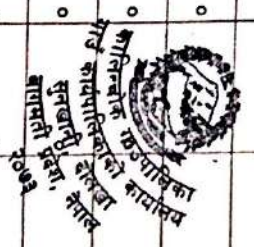 कालिन्चोक गाउँपालिका
गाउँ कार्यपालिकाको कार्यालय
दोलखा
सुनखानी
बागमती प्रदेश, नेपाल
२०७३